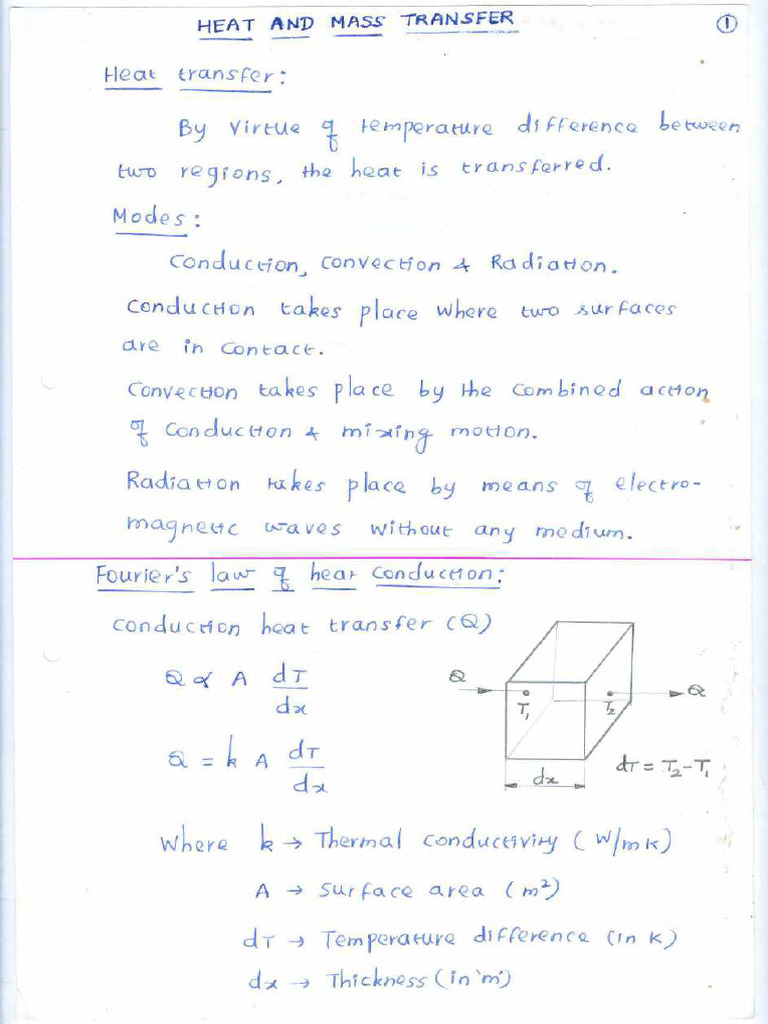 HEAT AND MASS TRANSFER ①
Heat transfer:
By virtue of temperature difference between
two regions, the heat is transferred.
Modes:
Conduction, Convection & Radiation.
Conduction takes place where two surfaces
are in contact.
Convection takes place by the combined action
of conduction & mixing motion.
Radiation takes place by means of electro-
magnetic waves without any medium.
Fourier's law of heat conduction:
Conduction heat transfer (Q)
Q ∝ A dT/dx
Q = k A dT/dx
Q T₁ T₂ Q
dx
dT = T₂-T₁
Where k → Thermal conductivity (W/mK)
A → Surface area (m²)
dT → Temperature difference (in K)
dx → Thickness (in 'm')